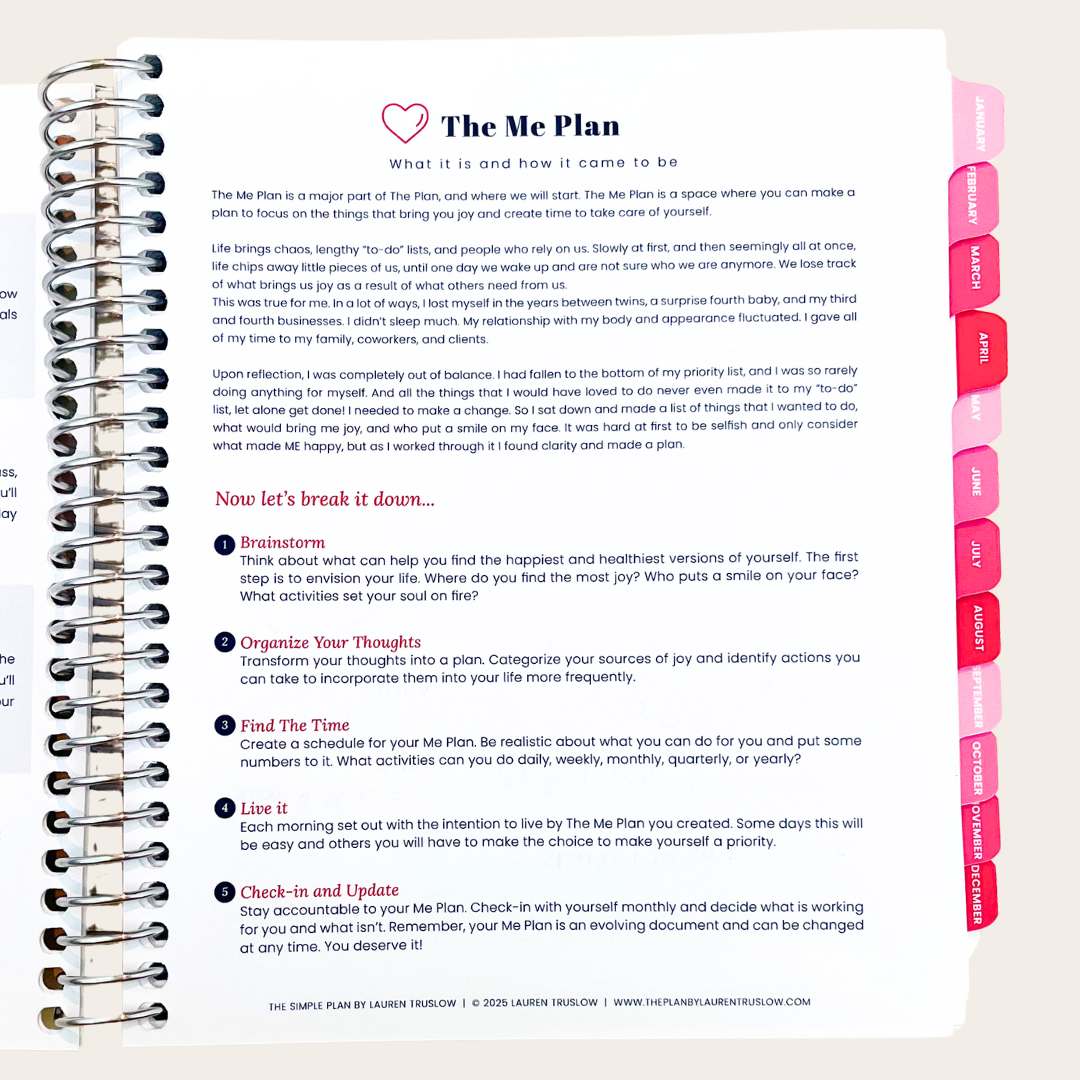 ow
als
ss,
u'll
lay
he
u'll
our
The Me Plan
What it is and how it came to be
The Me Plan is a major part of The Plan, and where we will start. The Me Plan is a space where you can make a
plan to focus on the things that bring you joy and create time to take care of yourself.
Life brings chaos, lengthy "to-do" lists, and people who rely on us. Slowly at first, and then seemingly all at once,
life chips away little pieces of us, until one day we wake up and are not sure who we are anymore. We lose track
of what brings us joy as a result of what others need from us.
This was true for me. In a lot of ways, I lost myself in the years between twins, a surprise fourth baby, and my third
and fourth businesses. I didn't sleep much. My relationship with my body and appearance fluctuated. I gave all
of my time to my family, coworkers, and clients.
Upon reflection, I was completely out of balance. I had fallen to the bottom of my priority list, and I was so rarely
doing anything for myself. And all the things that I would have loved to do never even made it to my "to-do"
list, let alone get done! I needed to make a change. So I sat down and made a list of things that I wanted to do,
what would bring me joy, and who put a smile on my face. It was hard at first to be selfish and only consider
what made ME happy, but as I worked through it I found clarity and made a plan.
Now let's break it down...
1 Brainstorm
Think about what can help you find the happiest and healthiest versions of yourself. The first
step is to envision your life. Where do you find the most joy? Who puts a smile on your face?
What activities set your soul on fire?
2 Organize Your Thoughts
Transform your thoughts into a plan. Categorize your sources of joy and identify actions you
can take to incorporate them into your life more frequently.
3 Find The Time
Create a schedule for your Me Plan. Be realistic about what you can do for you and put some
numbers to it. What activities can you do daily, weekly, monthly, quarterly, or yearly?
4 Live it
Each morning set out with the intention to live by The Me Plan you created. Some days this will
be easy and others you will have to make the choice to make yourself a priority.
5 Check-in and Update
Stay accountable to your Me Plan. Check-in with yourself monthly and decide what is working
for you and what isn't. Remember, your Me Plan is an evolving document and can be changed
at any time. You deserve it!
THE SIMPLE PLAN BY LAUREN TRUSLOW | © 2025 LAUREN TRUSLOW | WWW.THEPLANBYLAURENTRUSLOW.COM
JANUARY
FEBRUARY
MARCH
APRIL
MAY
JUNE
JULY
AUGUST
EPTEMBER
OCTOBER
OVEMBER
DECEMBER